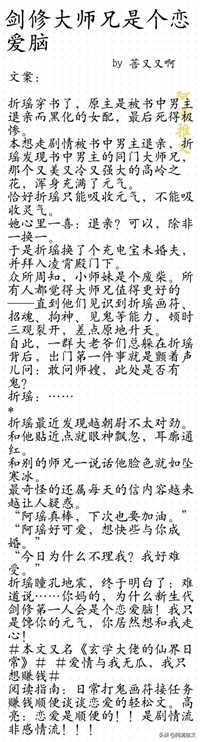 剑修大师兄是个恋
爱脑
by 菩又又啊
文案：
折瑶穿书了，原主是被书中男主
退亲而黑化的女配，最后死得极
惨。
本想走剧情被书中男主退亲，折
瑶发现书中男主的同门大师兄，
那个又美又冷又强大的高岭之
花，浑身充满了元气。
恰好折瑶只能吸收元气，不能吸
收灵气。
她心里一喜：退亲？可以，除非
一换一。
于是折瑶换了个充电宝未婚夫，
并拜入凌霄殿门下。
众所周知，小师妹是个废柴。所
有人都觉得大师兄值得更好的
——直到他们见识到折瑶画符、
招魂、拘神、见鬼等能力，顿时
三观裂开，差点原地升天。
自此，一群大老爷们总躲在折瑶
背后，出门第一件事就是颤着声
儿问：敢问师嫂，此处是否有
鬼？
折瑶：……
*
折瑶最近发现越朝尉不太对劲。
和他贴近点就眼神飘忽，耳廓通
红。
和别的师兄一说话他脸色就如坠
寒冰。
最奇怪的还属每天的信内容越来
越让人疑惑。
“阿瑶真棒，下次也要加油。”
“阿瑶好可爱，想快些与你成
婚。”
“今日为什么不理我？我好难
受。”
折瑶瞳孔地震，终于明白了：难
道说……你妈的，为什么新生代
剑修第一人会是个恋爱脑！我只
是馋你的元气，你居然想和我走
心！
#本文又名《玄学大佬的仙界日
常》# #爱情与我无瓜，我只
想赚钱#
阅读指南：日常打鬼画符接任务
赚钱顺便谈谈恋爱的轻松文。高
亮：恋爱是顺便的！！是剧情流
非感情流！！！
头条@阿澜推文